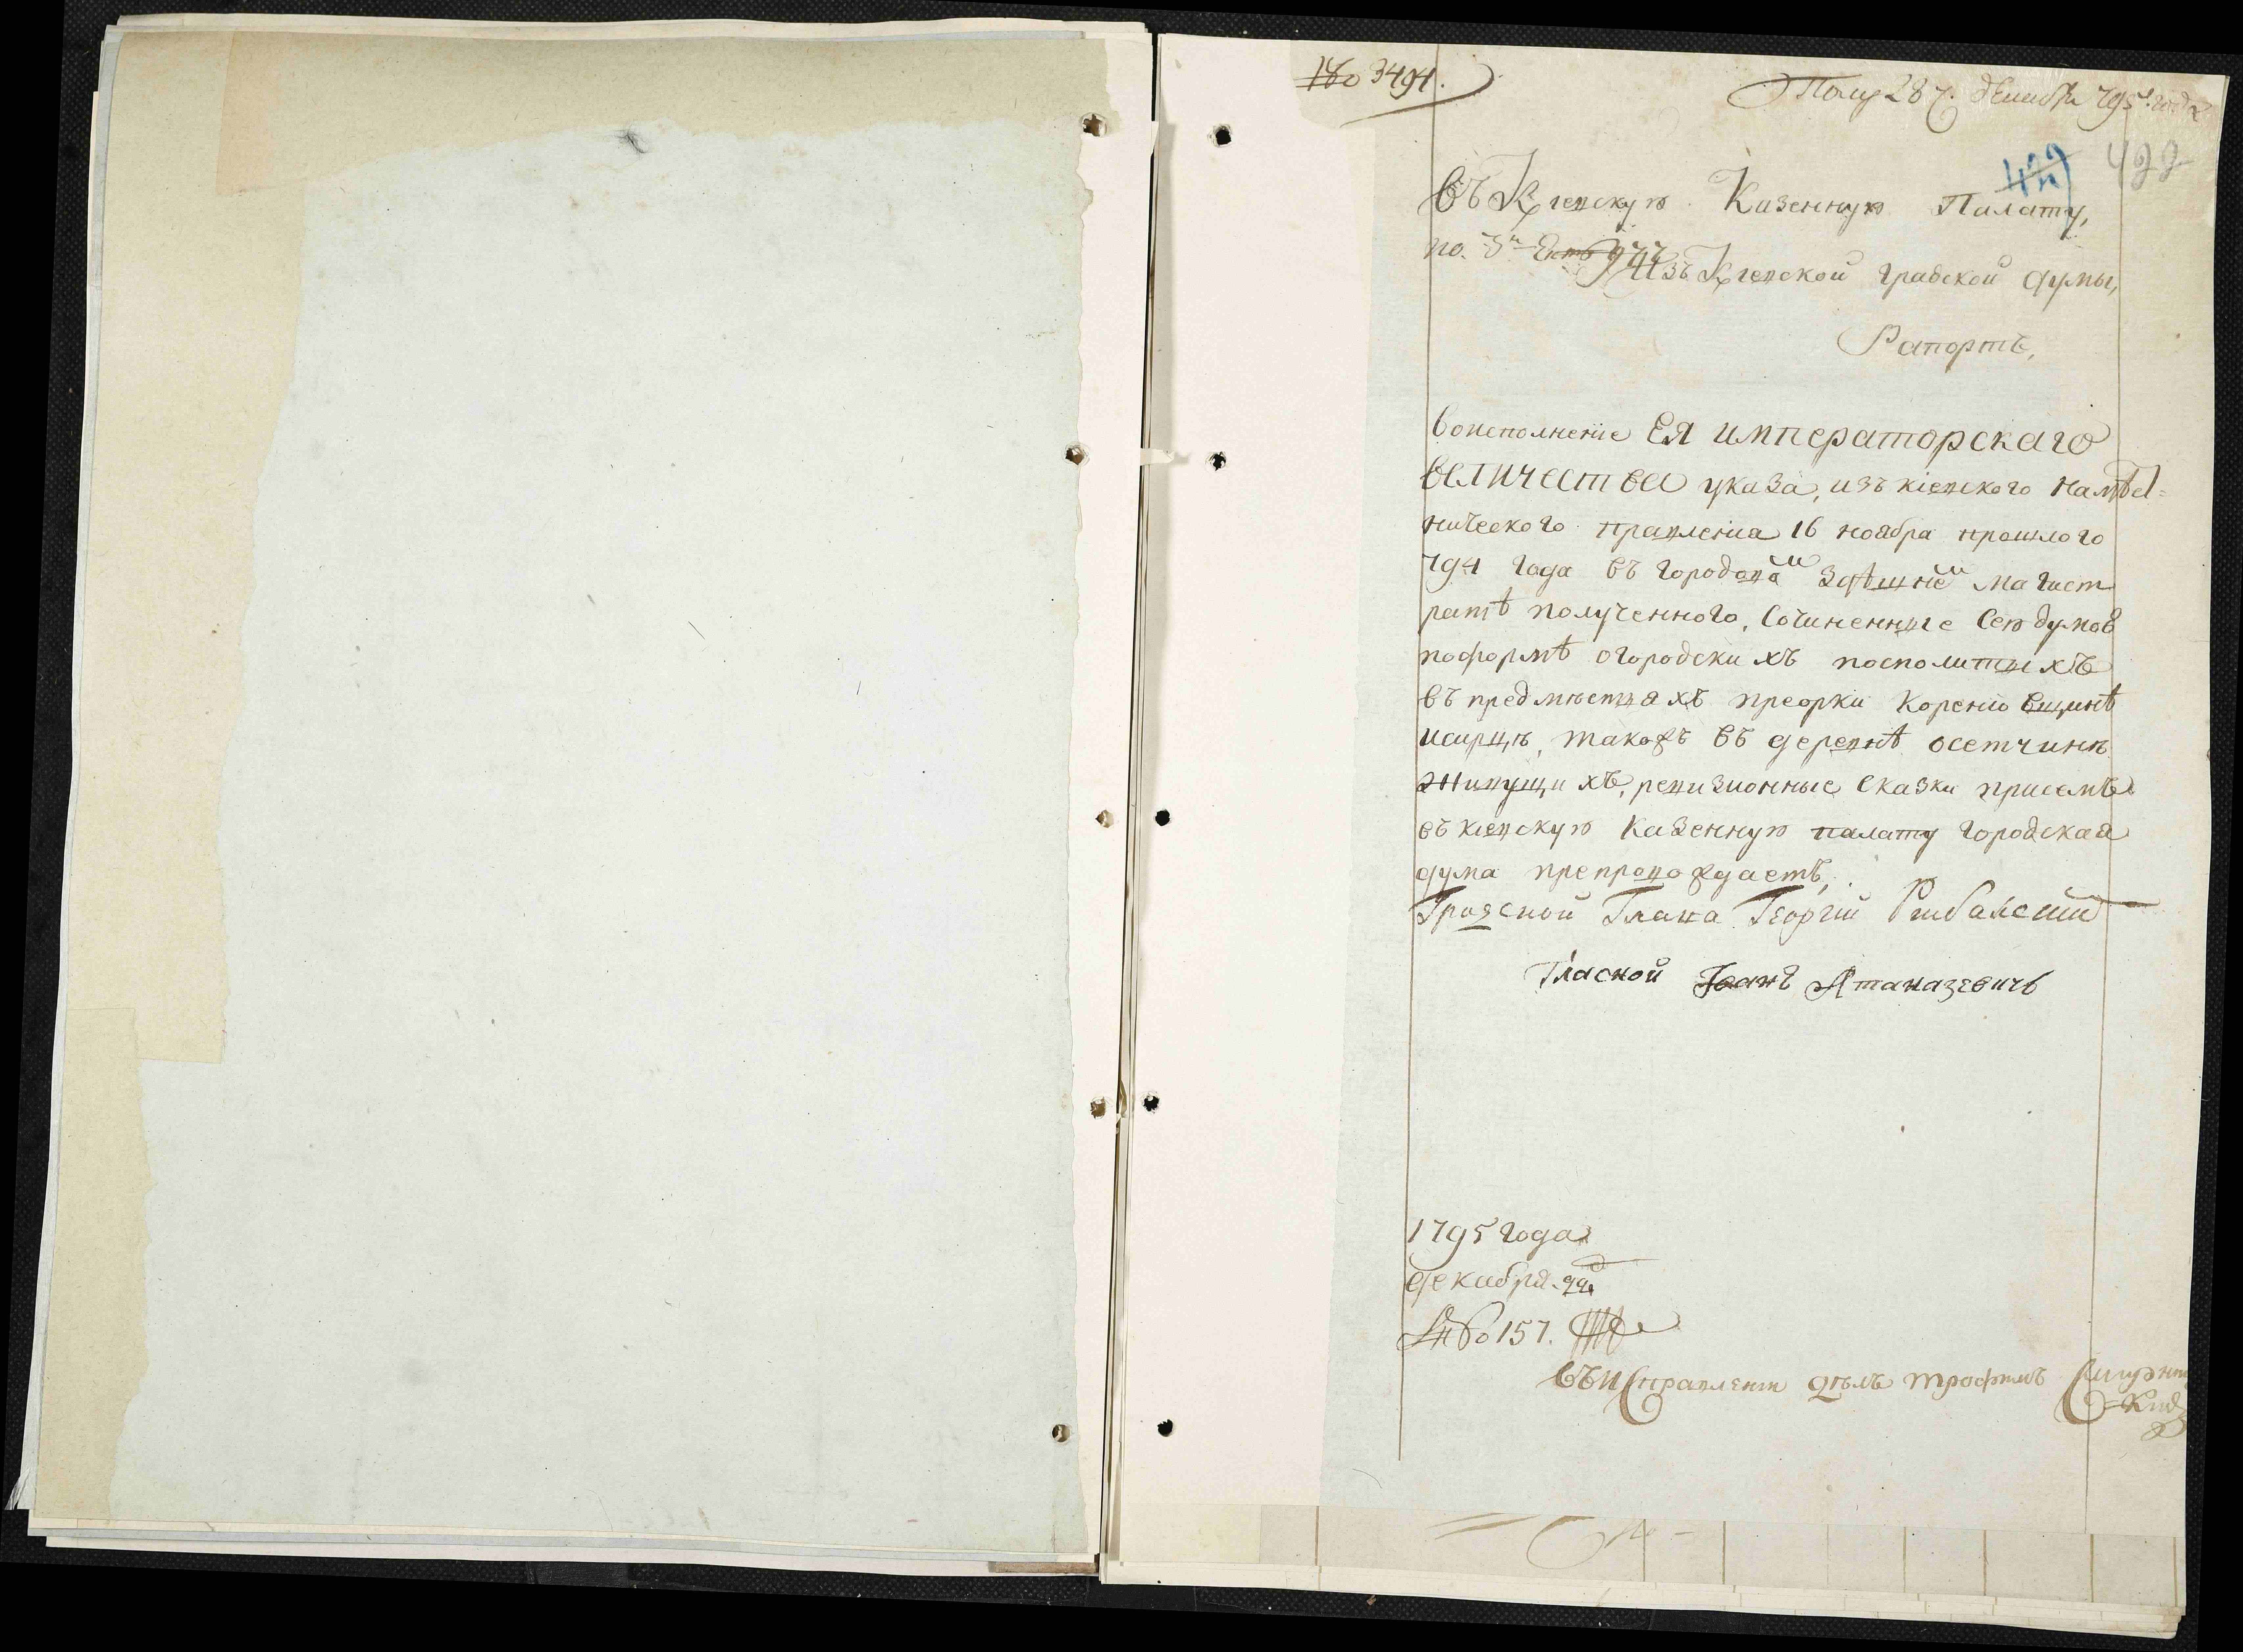 № 3494.
Полу 28 г. декабря 795 года
429
422
Въ Кіевскую Казенную Палату,
по.
Изъ Кіевской градской думы,
Рапортъ,
Воисполненіе ЕЯ ИМПЕРАТОРСКАГО
ВЕЛИЧЕСТВА указа, изъ кіевского намѣст=
ническаго правленія 16 ноября прошлого
794 года въ городовом здѣшнем магист
ратѣ полученного, Сочиненние Сею думою
поформѣ огородскихъ посполитыхъ
въ предмѣстяхъ преорки
исирцѣ, також въ деревнѣ осетчинѣ
живущихъ, ревизионные сказки присемъ
въ кіевскую казенную палату городская
дума препровождаетъ,
Градской Глава Георгій Рибалскій
Гласной Іоанъ Атаназевичъ
1795 года
декабря
№ 157.
Въ исправленіи дѣлъ Трофимъ